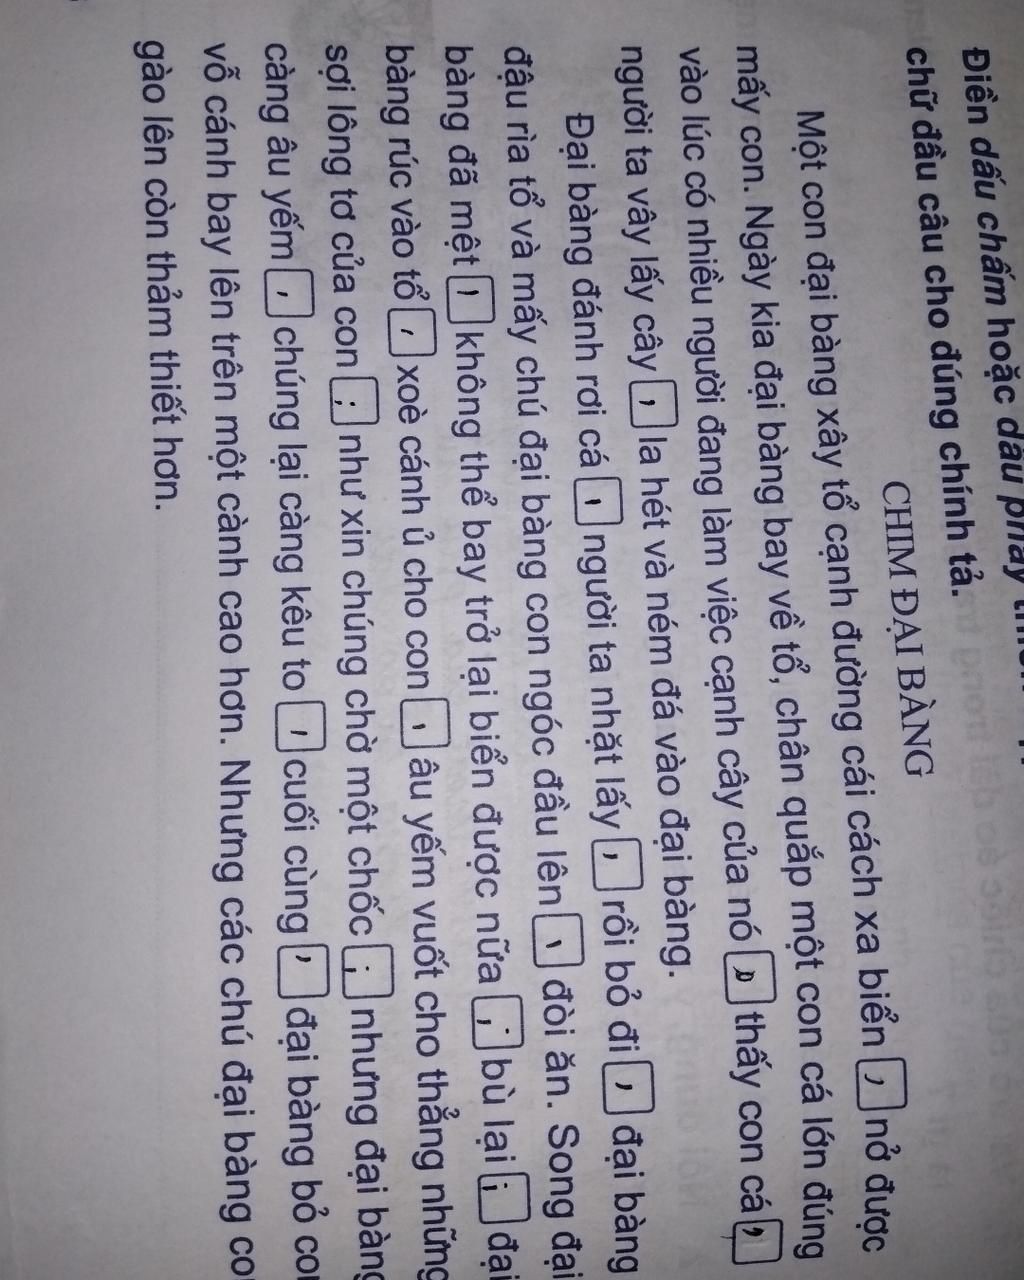 Điền dấu chấm hoặc dấu phẩy
chữ đầu câu cho đúng chính tả.
CHIM ĐẠI BÀNG
Một con đại bàng xây tổ cạnh đường cái cách xa biển , nở được
mấy con. Ngày kia đại bàng bay về tổ, chân quắp một con cá lớn đúng
vào lúc có nhiều người đang làm việc cạnh cây của nó thấy con cá ,
người ta vây lấy cây , la hét và ném đá vào đại bàng.
Đại bàng đánh rơi cá , người ta nhặt lấy , rồi bỏ đi , đại bàng
đậu rìa tổ và mấy chú đại bàng con ngóc đầu lên , đòi ăn. Song đại
bàng đã mệt , không thể bay trở lại biển được nữa ; bù lại ; đại
bàng rúc vào tổ , xoè cánh ủ cho con , âu yếm vuốt cho thẳng những
sợi lông tơ của con ; như xin chúng chờ một chốc ; nhưng đại bàng
càng âu yếm , chúng lại càng kêu to , cuối cùng , đại bàng bỏ con
vỗ cánh bay lên trên một cành cao hơn. Nhưng các chú đại bàng con
gào lên còn thảm thiết hơn.